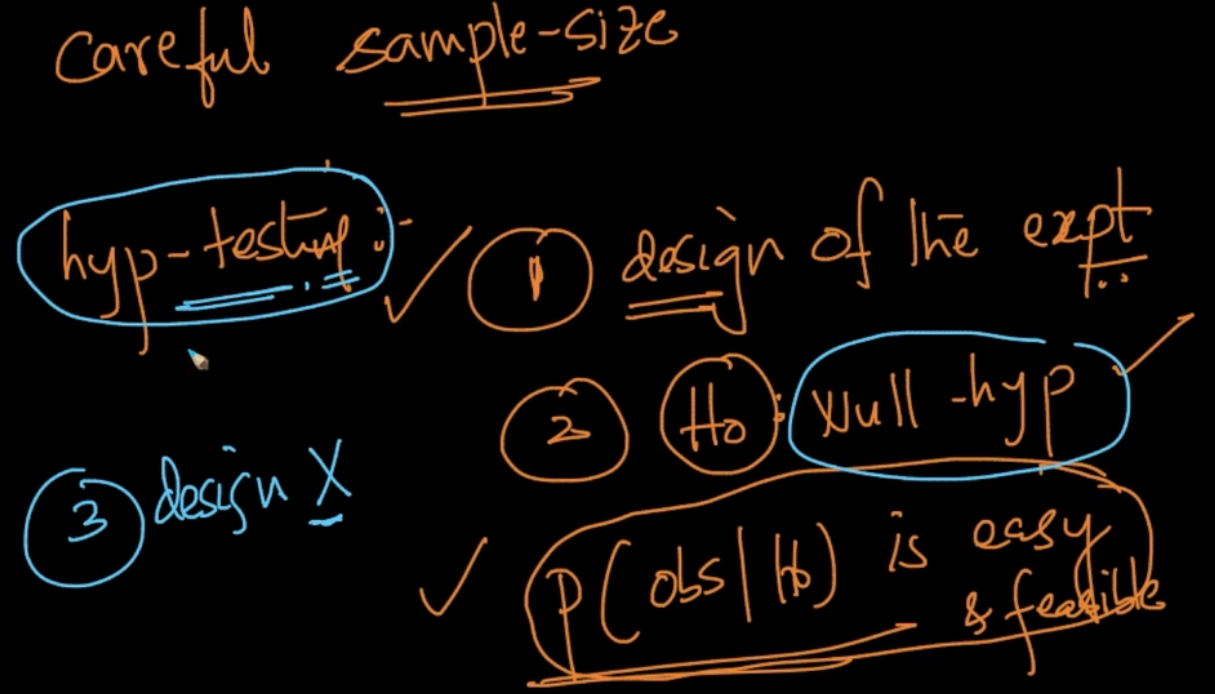 Careful sample-size
hyp-testing :-
① design of the expt
② H₀: Null-hyp
③ design X
P(obs|H₀) is easy
& feasible